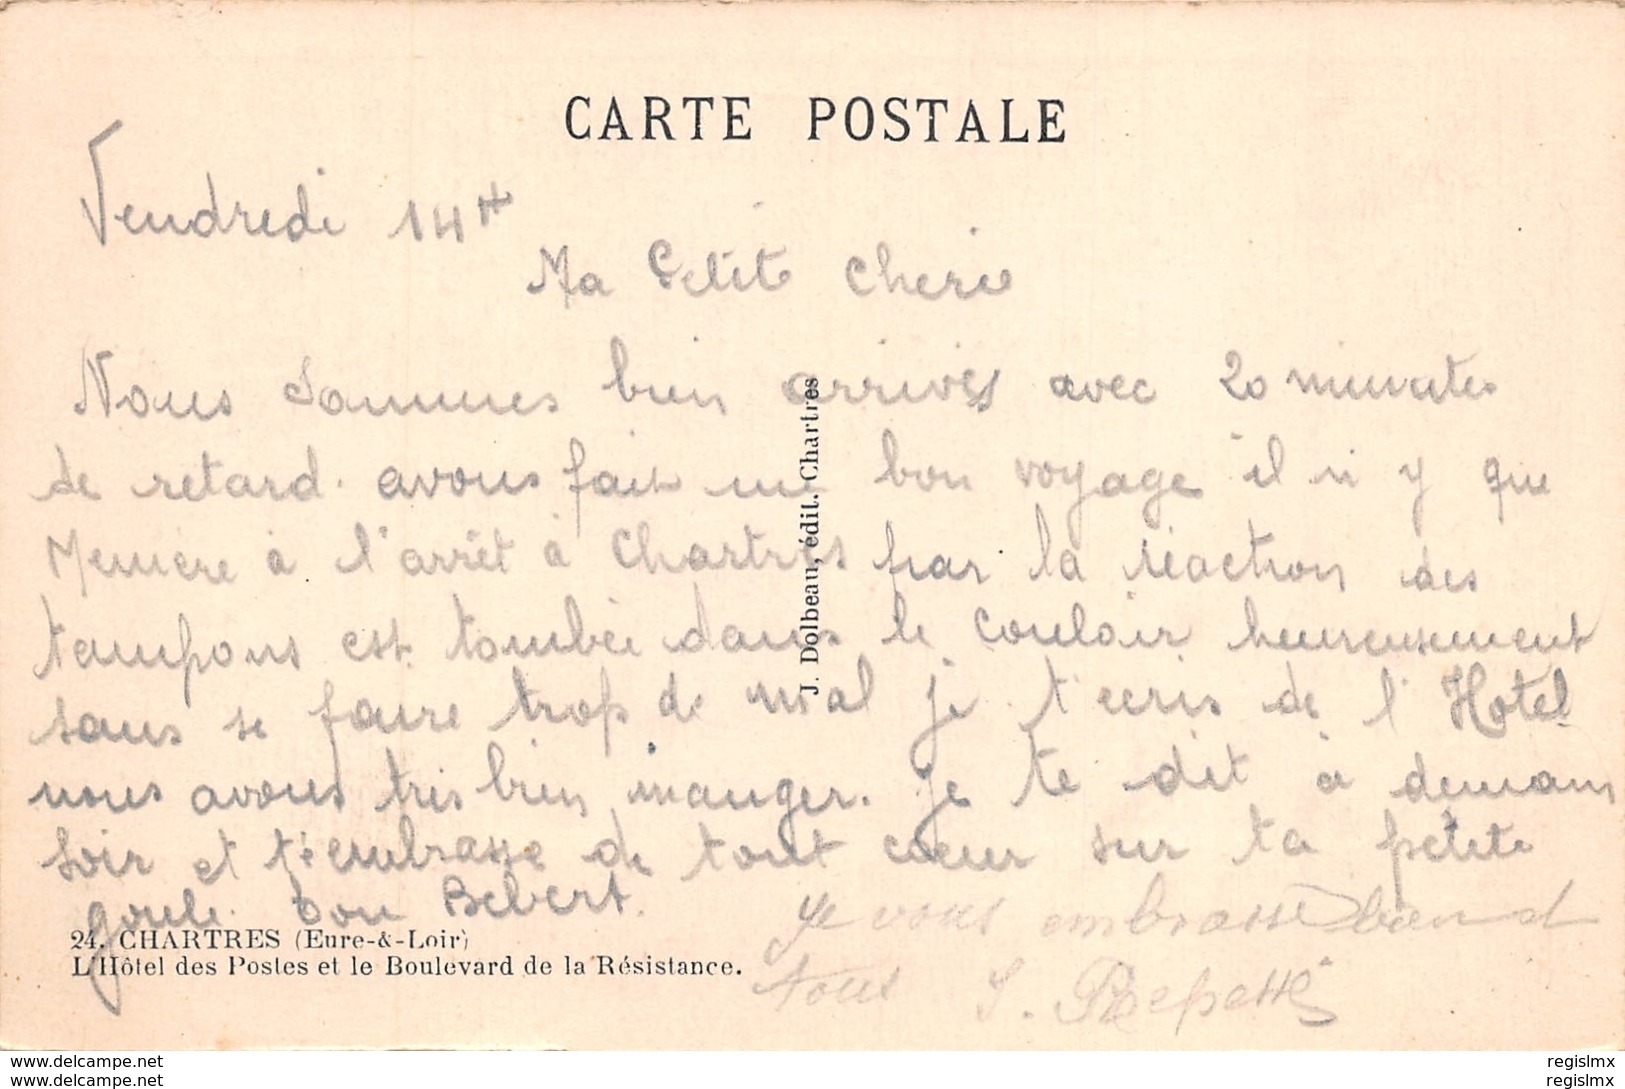 CARTE POSTALE
Vendredi 14
Ma Petite Cherie
Nous sommes bien arrivés avec 20 minutes
de retard. avons fait un bon voyage il n y que
Memère à l'arrêt à Chartres par la réaction des
tampons est tombée dans le couloir heureusement
sans se faire trop de mal je t'ecris de l'Hotel
nous avons très bien manger. je te dit à demain
soir et t'embrasse de tout coeur sur ta petite
goule. ton Bebert.
Je vous embrasse bien
tous
J. Dolbeau, édit. Chartres
24. CHARTRES (Eure-&-Loir)
L'Hôtel des Postes et le Boulevard de la Résistance.
www.delcampe.net
www.delcampe.net
regislmx
regislmx